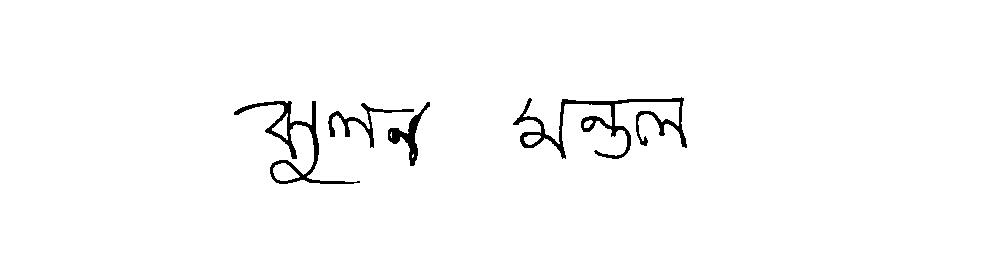 ঝুলন মন্ডল